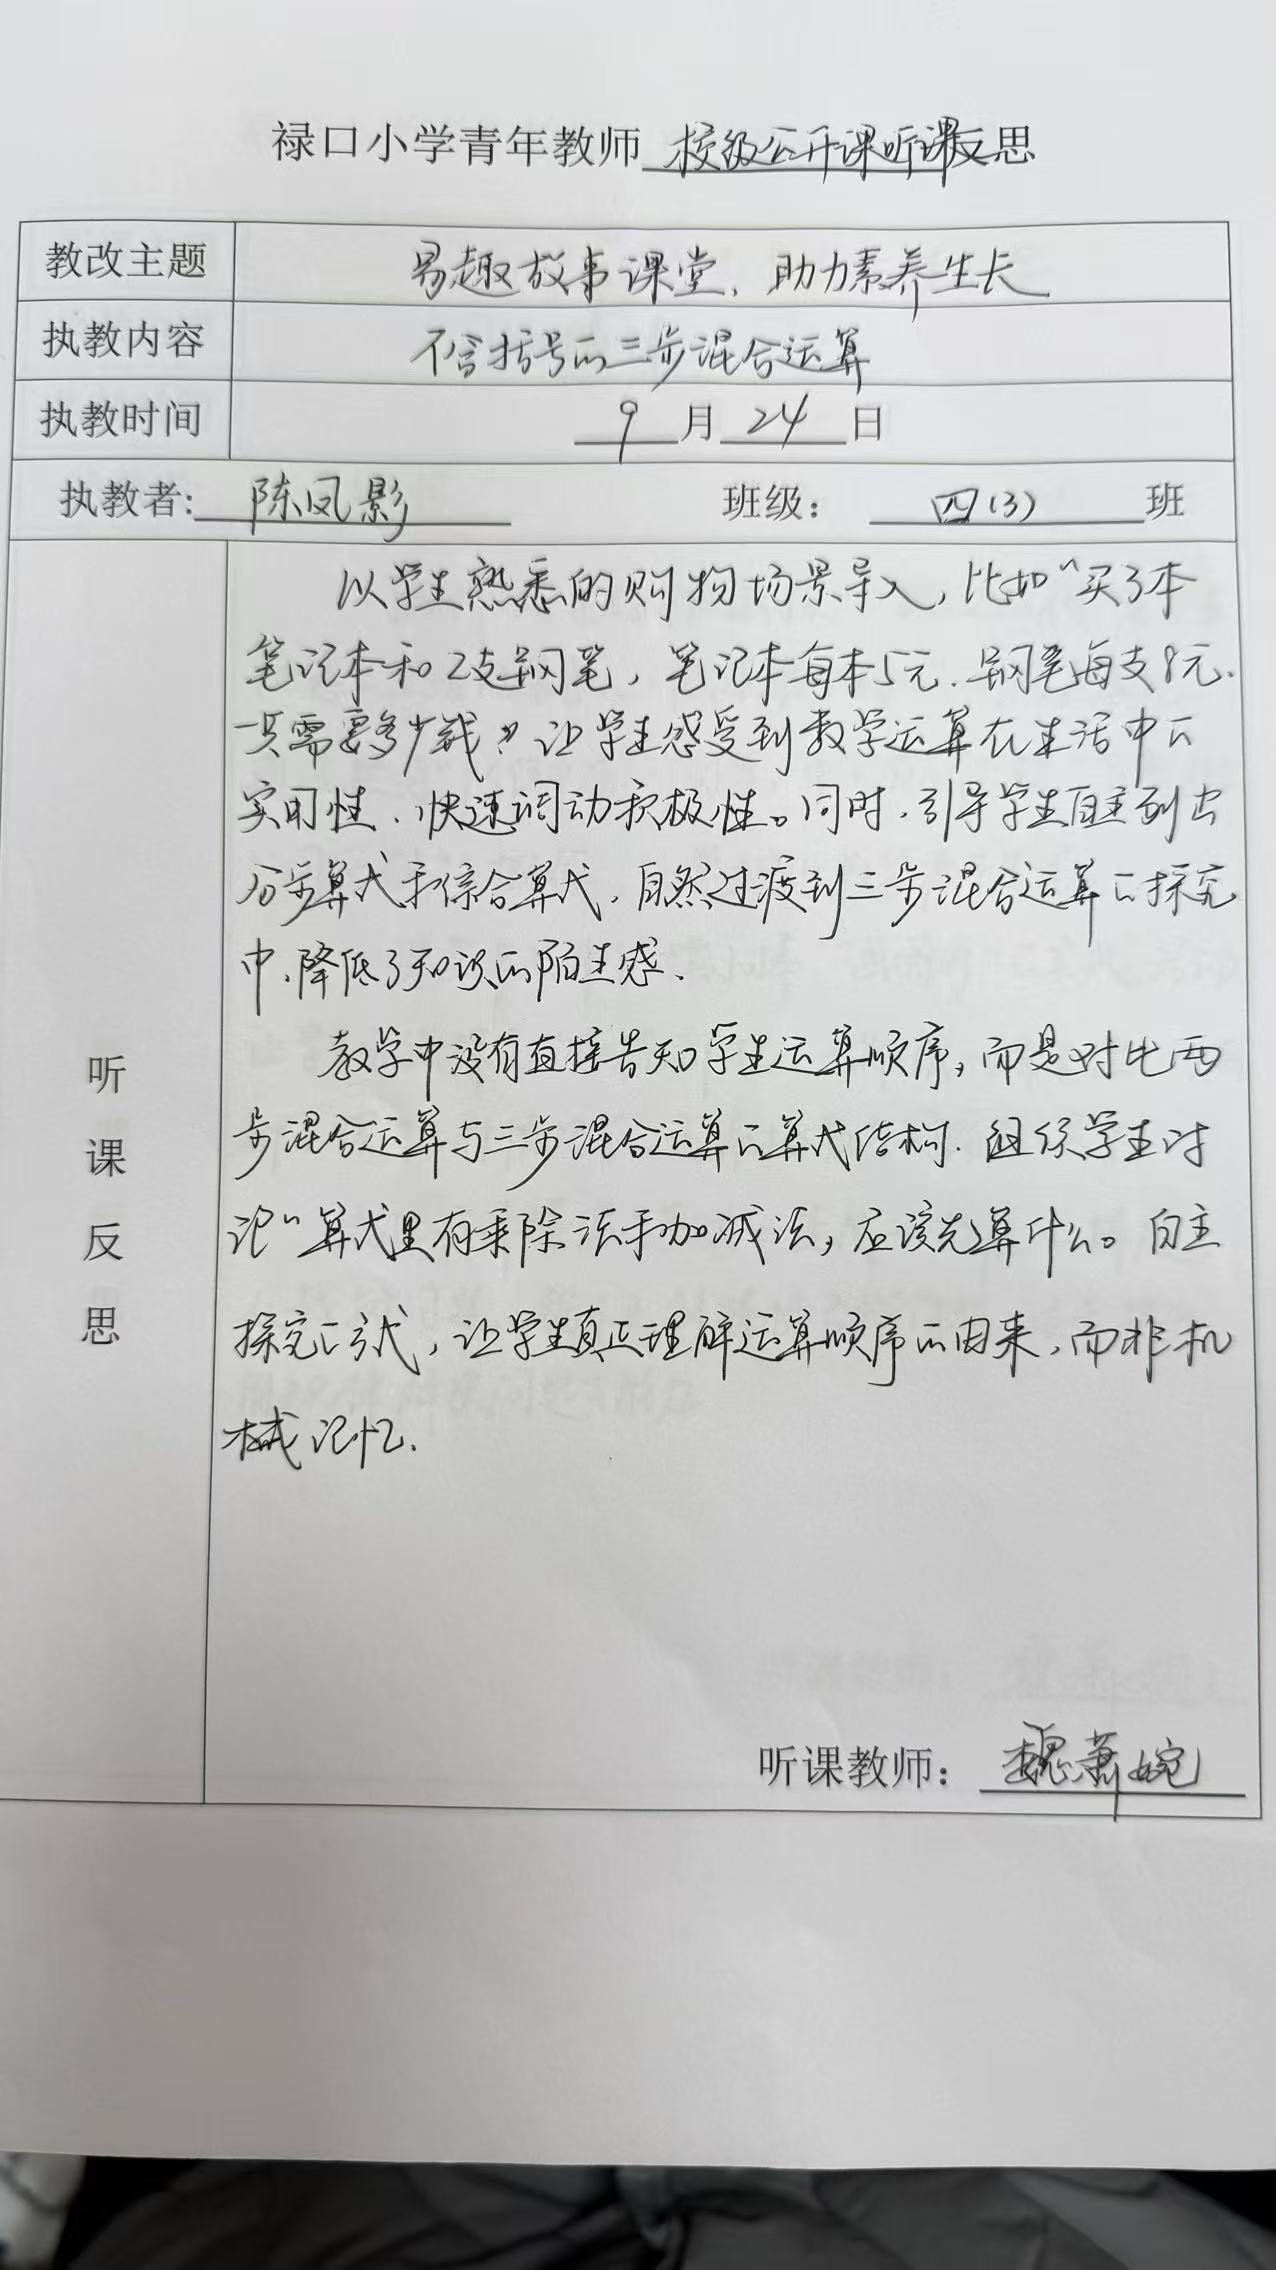 禄口小学青年教师校级公开课听课反思
教改主题 易趣故事课堂、助力素养生长
执教内容 不含括号的三步混合运算
执教时间 9月24日
执教者: 陈凤影 班级: 四(3)班
听课反思
以学生熟悉的购物场景导入,比如“买3本
笔记本和2支钢笔,笔记本每本5元、钢笔每支8元、
一共需要多少钱”让学生感受到数学运算在生活中的
实用性、快速调动积极性。同时、引导学生自主列出
分步算式和综合算式、自然过渡到三步混合运算的探究
中、降低了知识的陌生感.
教学中没有直接告知学生运算顺序,而是对比两
步混合运算与三步混合运算的算式结构.组织学生讨
论“算式里有乘除法和加减法,应该先算什么。自主
探究的方式,让学生真正理解运算顺序的由来、而非机
械记忆.
听课教师: 魏萧婉